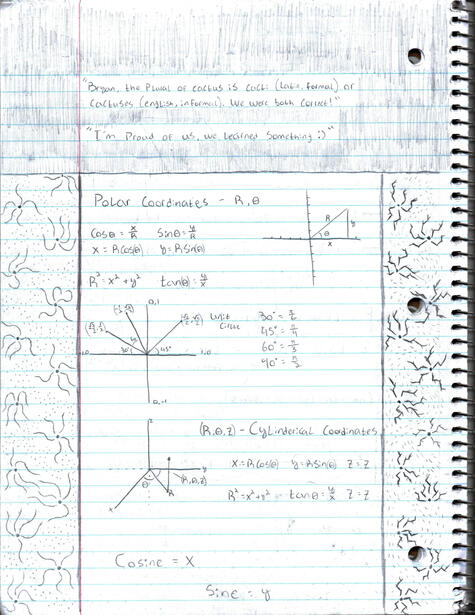 "Bryan, the Plural of cactus is cacti (Latin, formal) or
cactuses (english, informal). We were both correct!"
"I'm Proud of us, we Learned Something :)"
Polar Coordinates - R, θ
R
y
θ
x
cosθ = x/R   sinθ = y/R
x = Rcos(θ)   y = Rsin(θ)
R² = x² + y²   tan(θ) = y/x
0,1
Unit
Circle
30° = π/6
45° = π/4
60° = π/3
90° = π/2
30°
45°
1,0
0,-1
(R,θ,Z) - Cylinderical Coordinates
Z
x = Rcos(θ)   y = Rsin(θ)   Z = Z
y
θ
(R,θ,Z)
R
R² = x² + y²   tanθ = y/x   Z = Z
x
Cosine = X
Sine = y